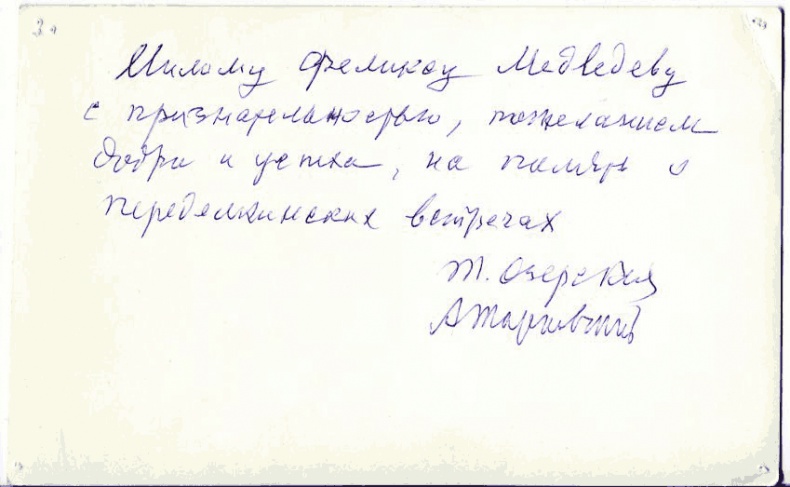 Милому Феликсу Медведеву
с признательностью, пожеланием
добра и успеха, на память о
переделкинских встречах
Т. Озерская